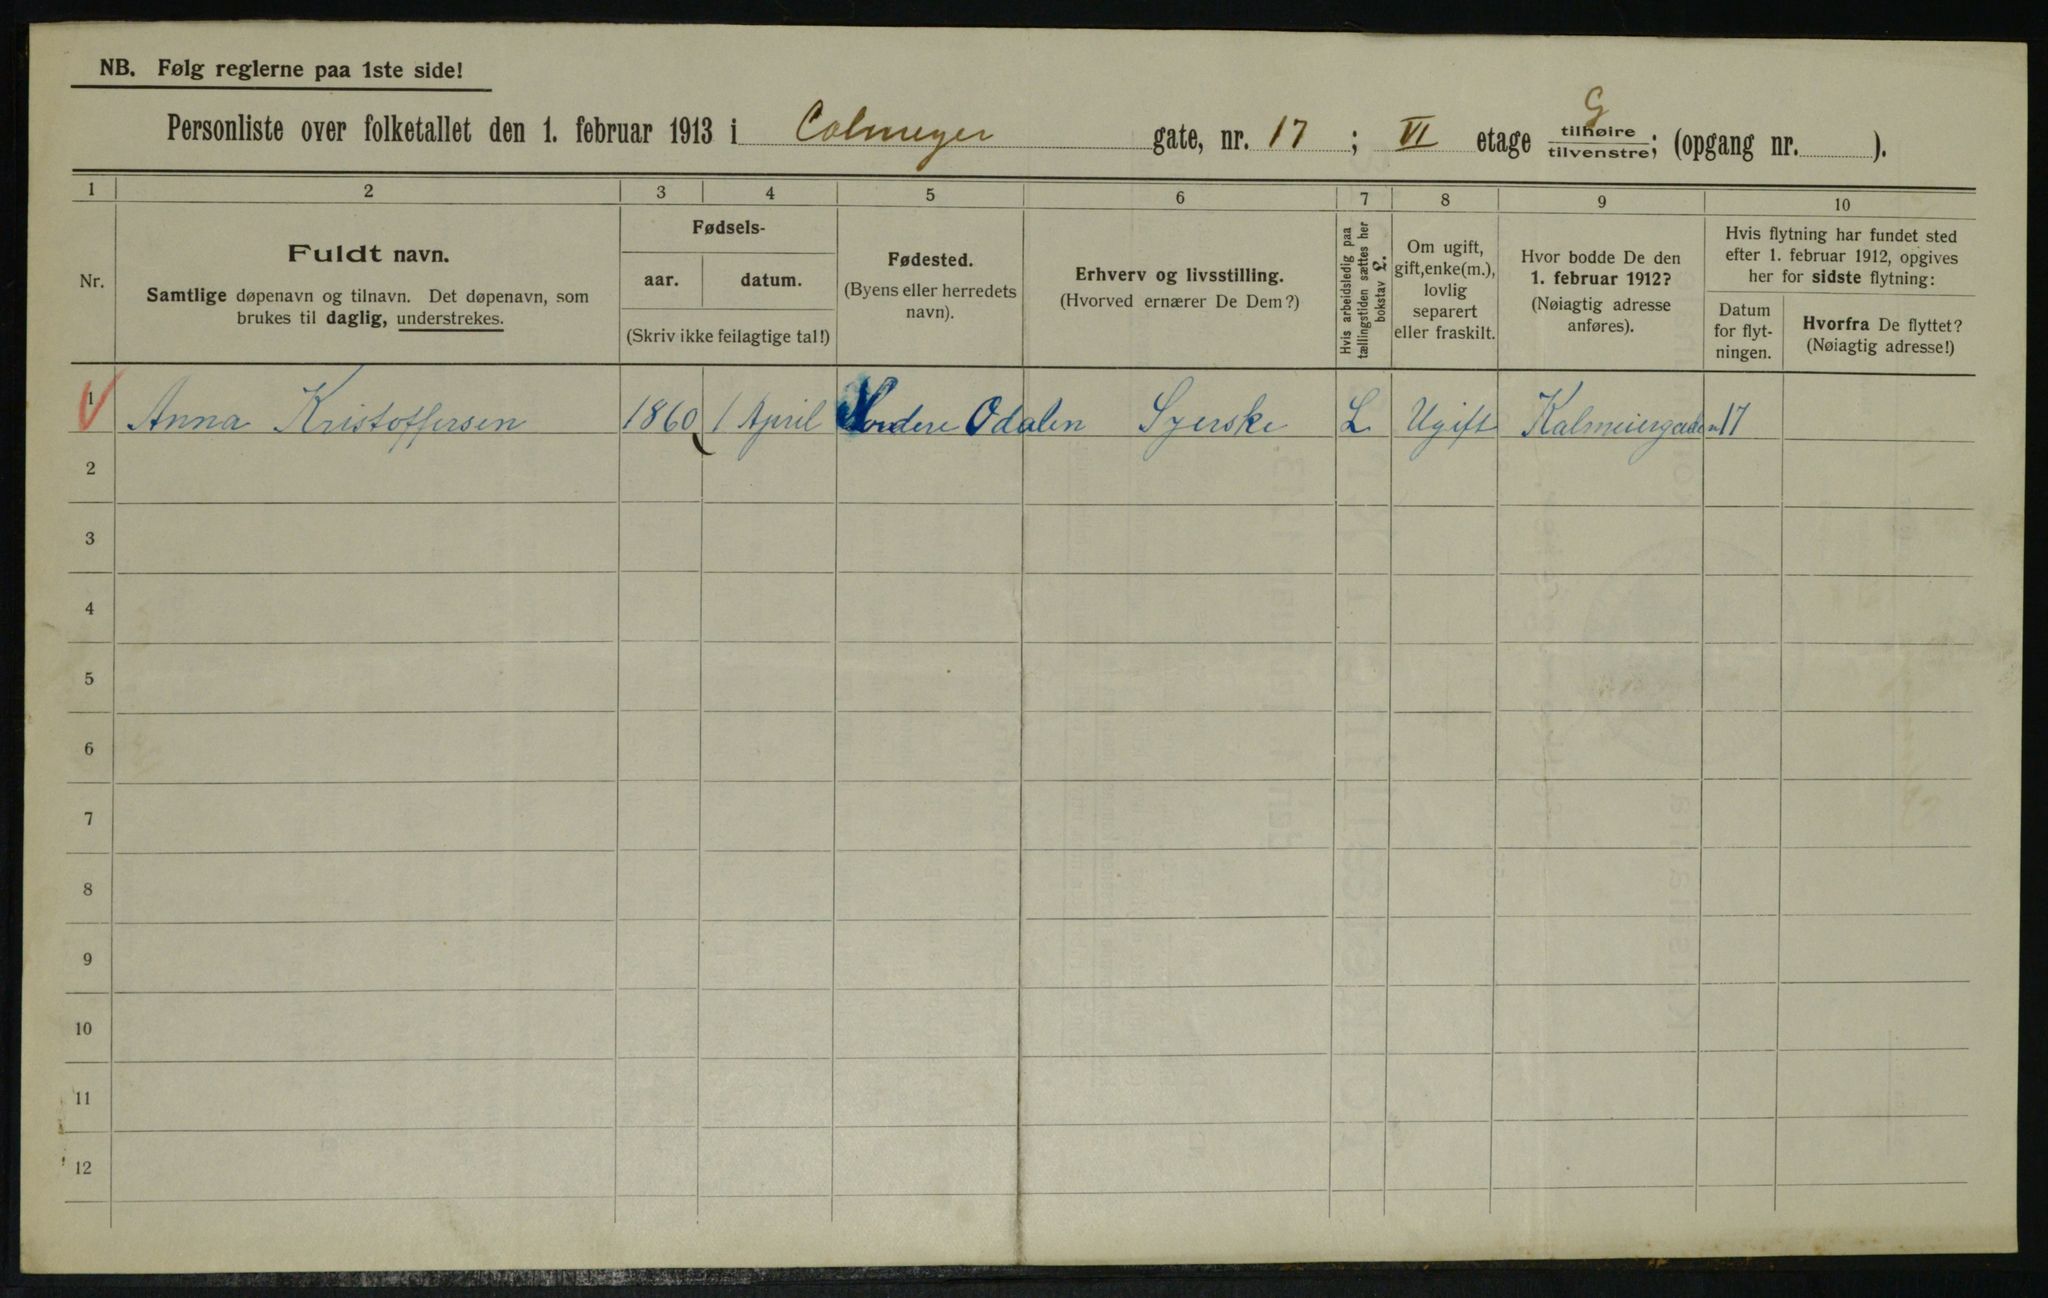 NB. Følg reglerne paa 1ste side!
G
Personliste over folketallet den 1. februar 1913 i Calmeyer gate, nr. 17 ; VI etage tilhøire / tilvenstre; (opgang nr. ).
1 2 3 4 5 6 7 8 9 10
Nr.
Fuldt navn.
Samtlige døpenavn og tilnavn. Det døpenavn, som
brukes til daglig, understrekes.
Fødsels-
aar. datum.
(Skriv ikke feilagtige tal!)
Fødested.
(Byens eller herredets
navn).
Erhverv og livsstilling.
(Hvorved ernærer De Dem?)
Hvis arbeidsledig paa
tællingstiden sættes her
bokstav L.
Om ugift,
gift, enke(m.),
lovlig
separert
eller fraskilt.
Hvor bodde De den
1. februar 1912?
(Nøiagtig adresse
anføres).
Hvis flytning har fundet sted
efter 1. februar 1912, opgives
her for sidste flytning:
Datum
for flyt-
ningen.
Hvorfra De flyttet?
(Nøiagtig adresse!)
1 Anna Kristoffersen 1860 1 April Nordere Odalen Syerske L Ugift Kalmeiergaden 17
2
3
4
5
6
7
8
9
10
11
12